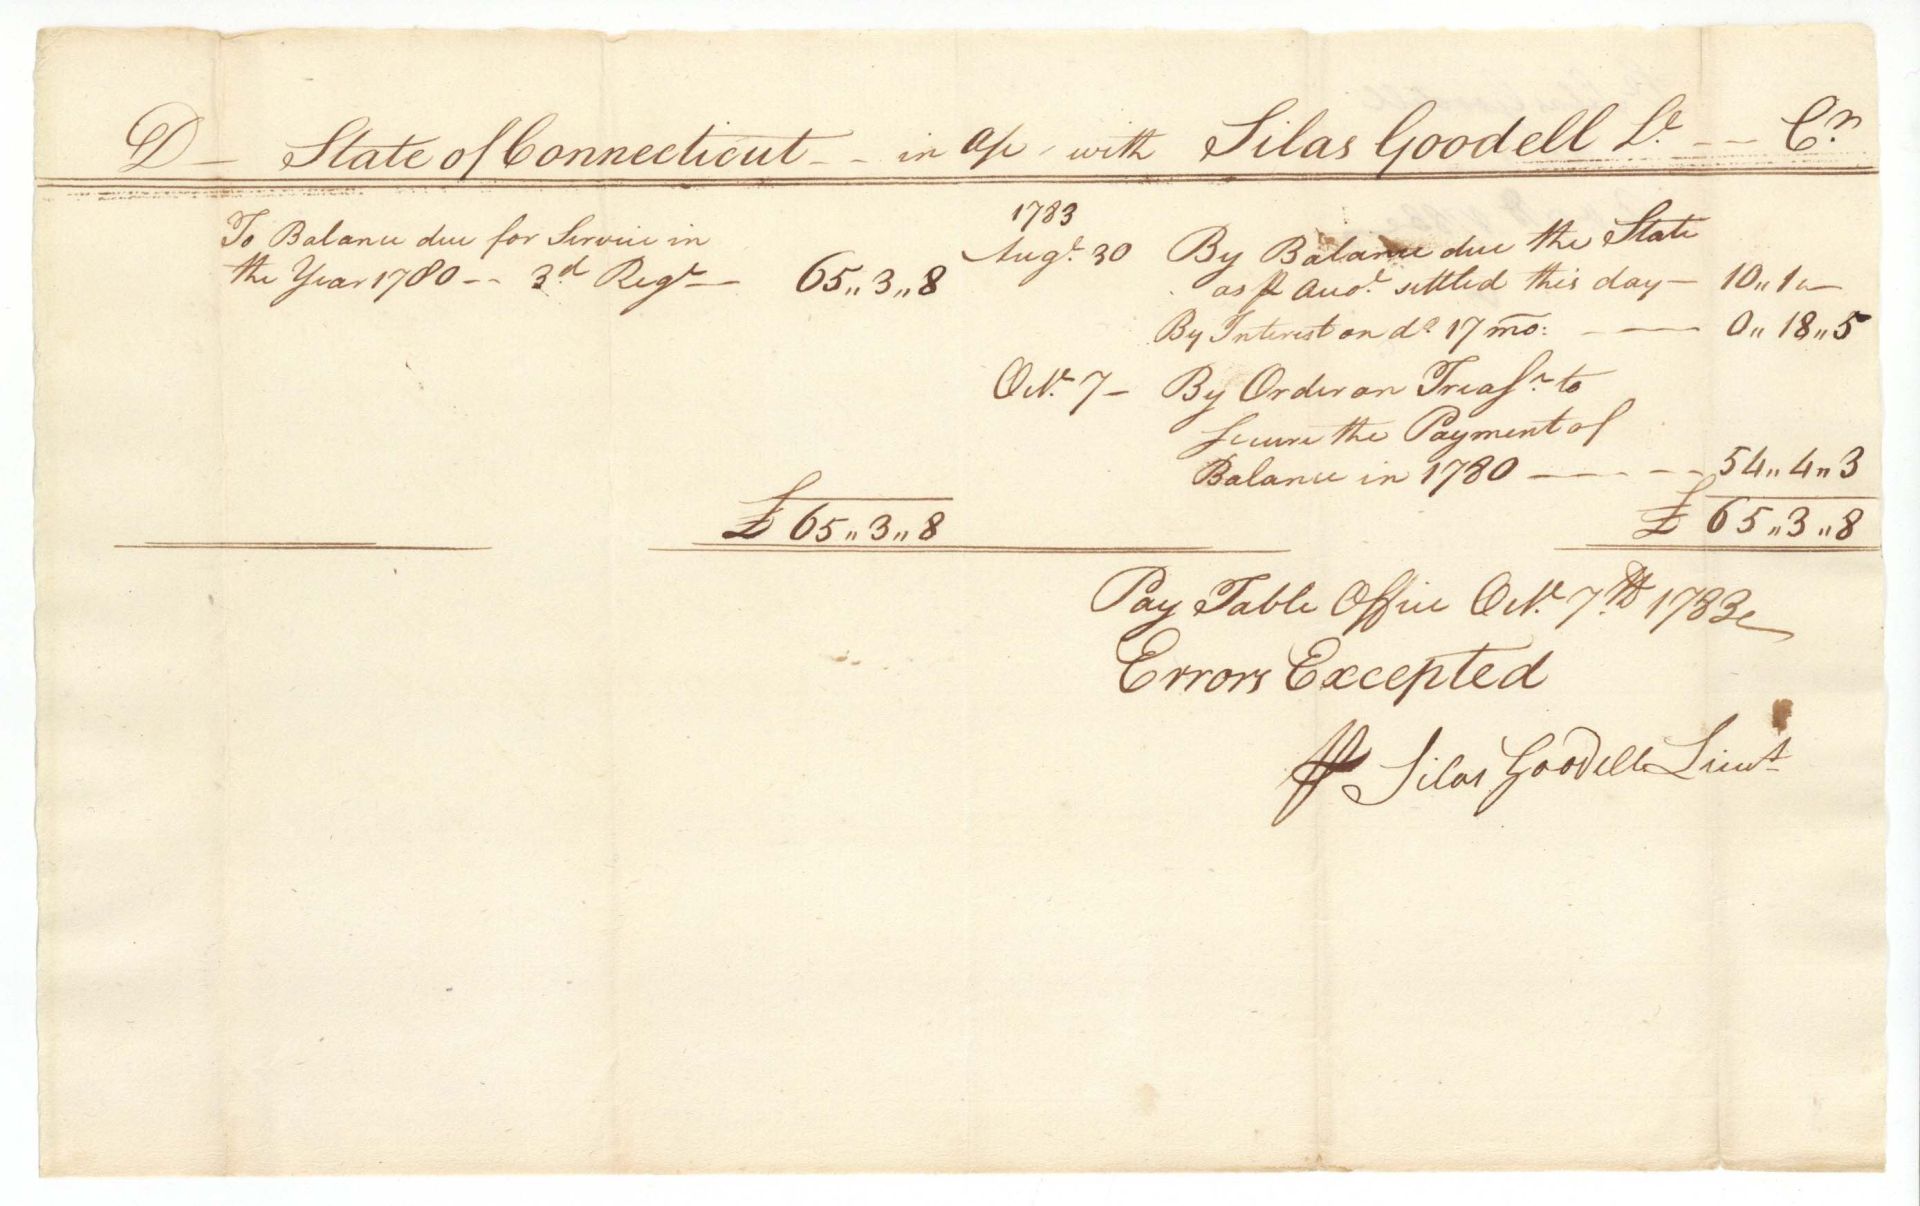 D — State of Connecticut - - in a/c with Silas Goodell Lt. - - Cr.
To Balance due for Service in
the Year 1780 - - 3d Regt — 65,,3,,8
£ 65,,3,,8
1783
Augt. 30 By Balance due the State
as ⅌ Accot. settled this day — 10,,1,,—
By Interest on do. 17 mo: — — 0,,18,,5
Oct. 7 — By Order on Treasr. to
secure the Payment of
Balance in 1780 — — - - 54,,4,,3
£ 65,,3,,8
Pay Table Office Oct. 7th 1783
Errors Excepted
⅌ Silas Goodell Lieut